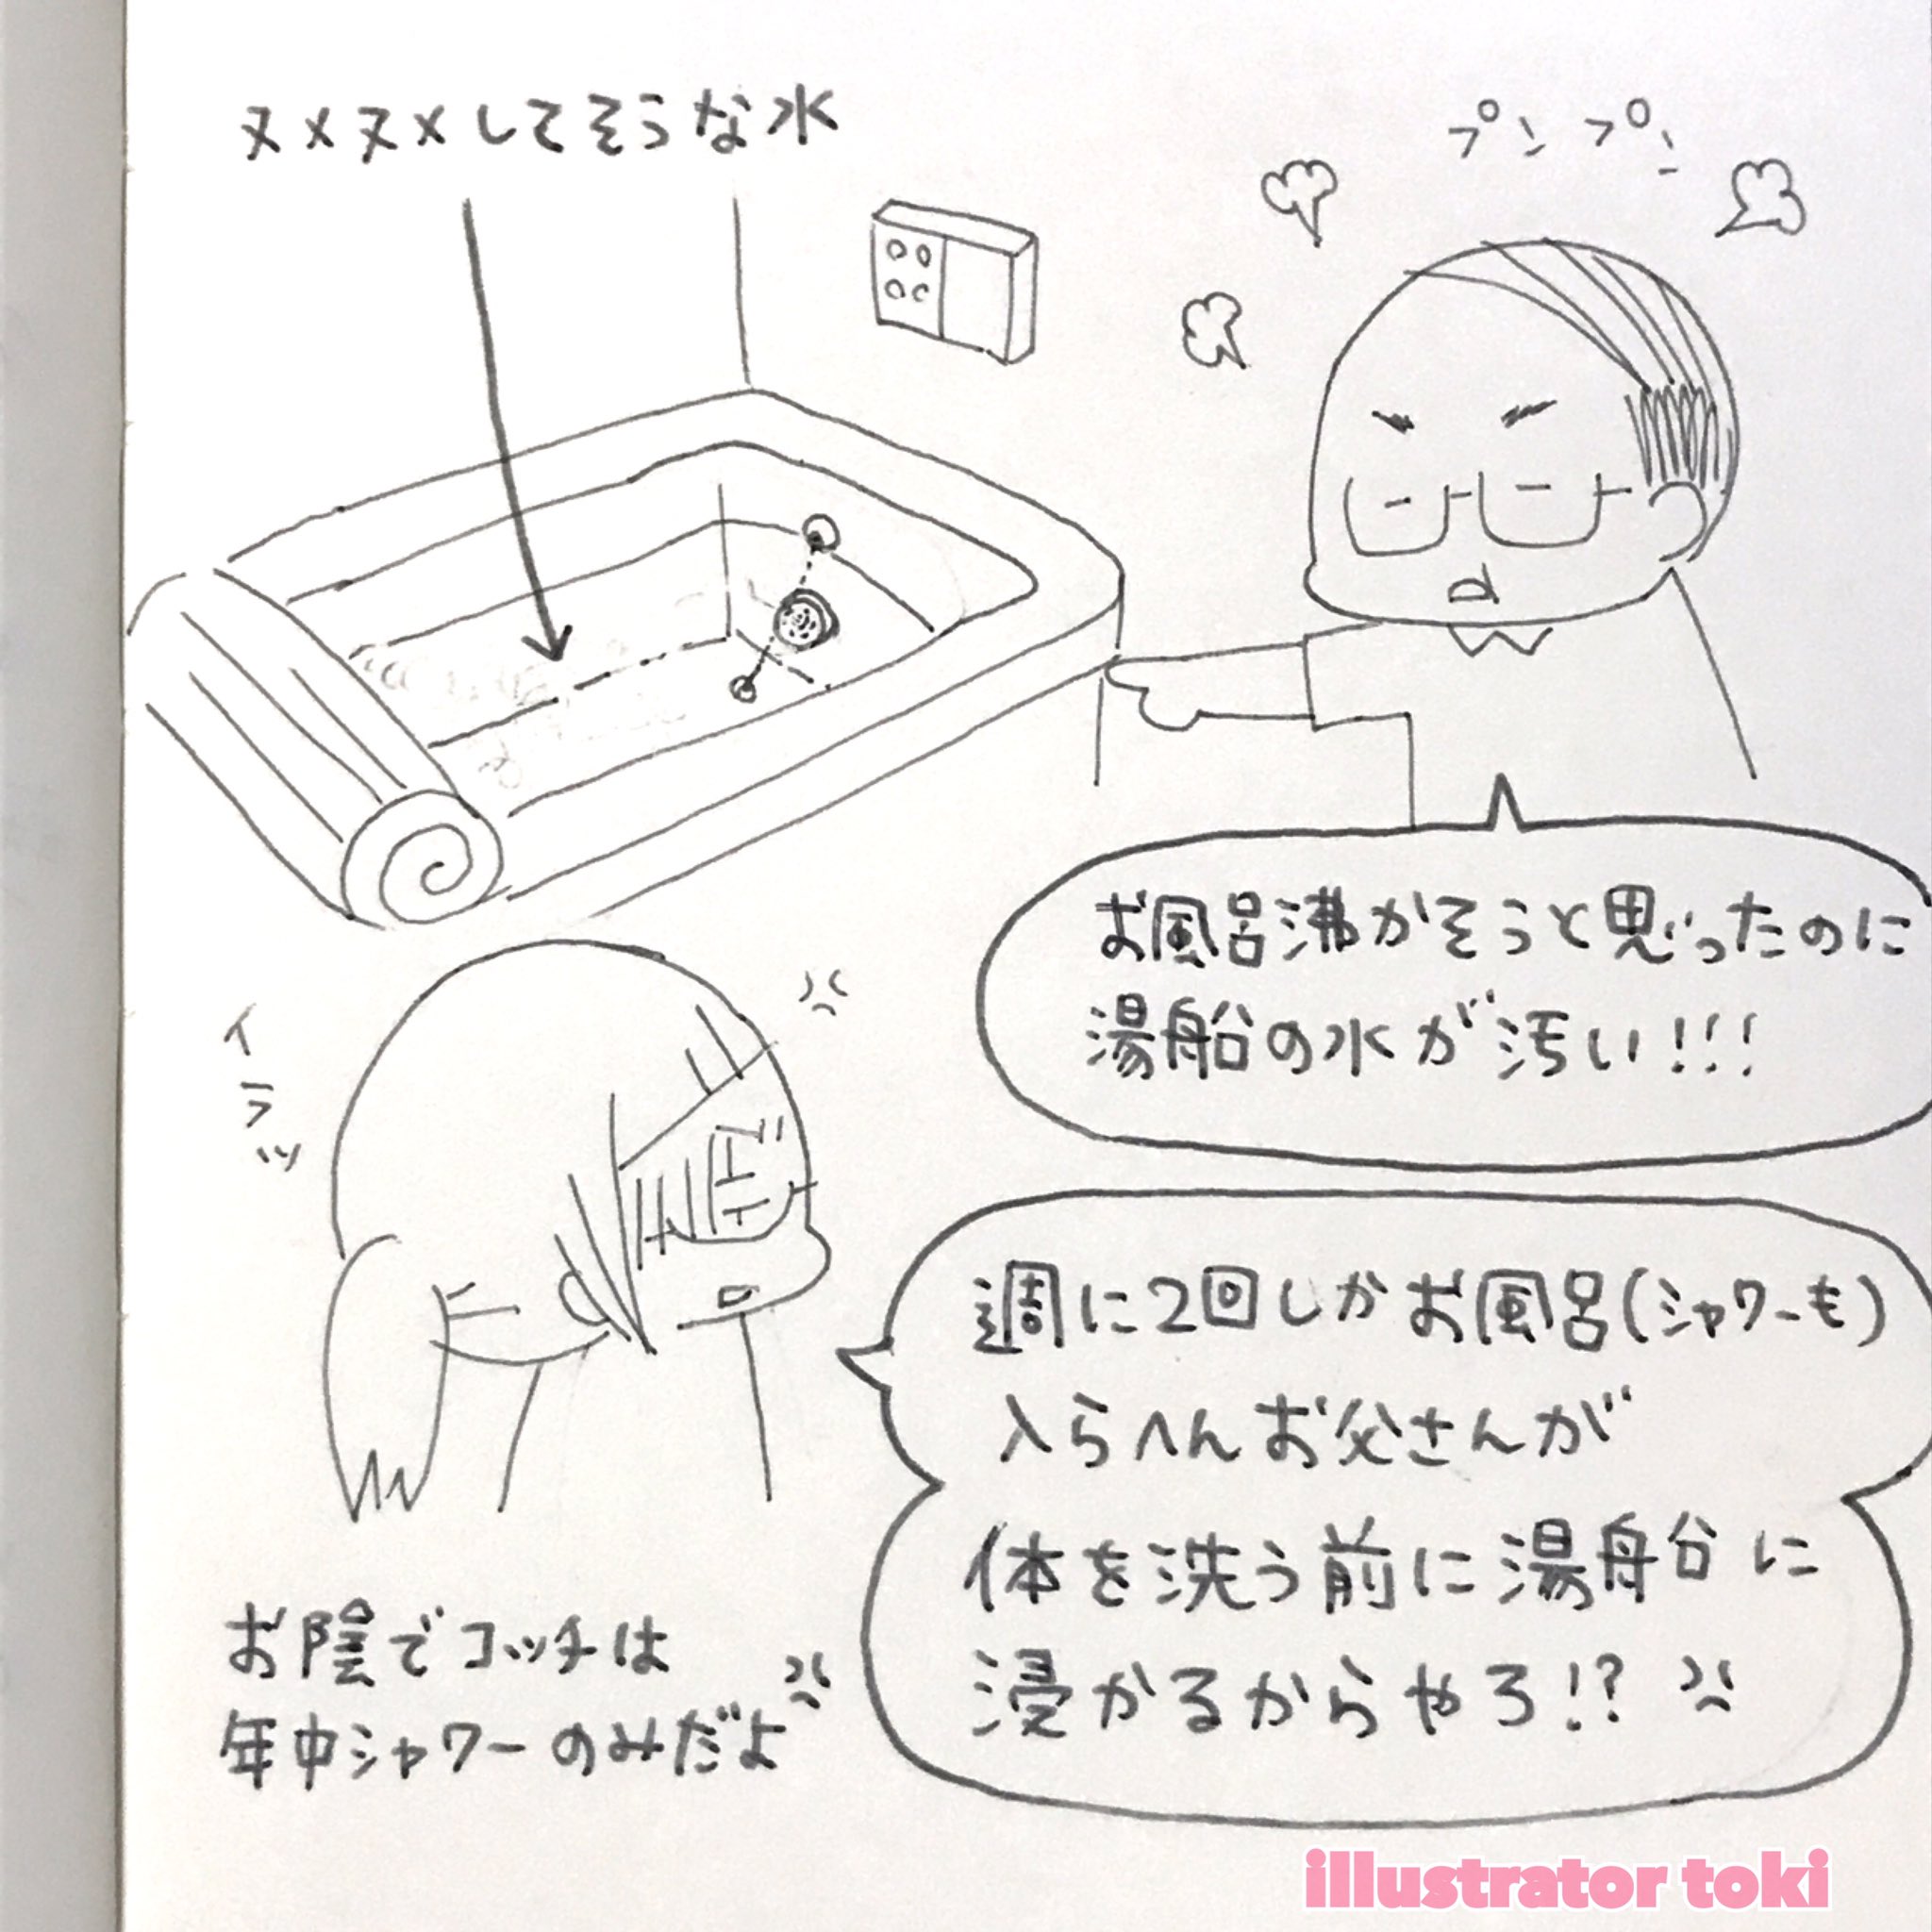 ヌメヌメしてそうな水
プンプン
お風呂沸かそうと思ったのに
湯船の水が汚い!!!
イラッ
週に2回しかお風呂(シャワーも)
入らへんお父さんが
体を洗う前に湯船に
浸かるからやろ!?
お陰でコッチは
年中シャワーのみだよ
illustrator toki